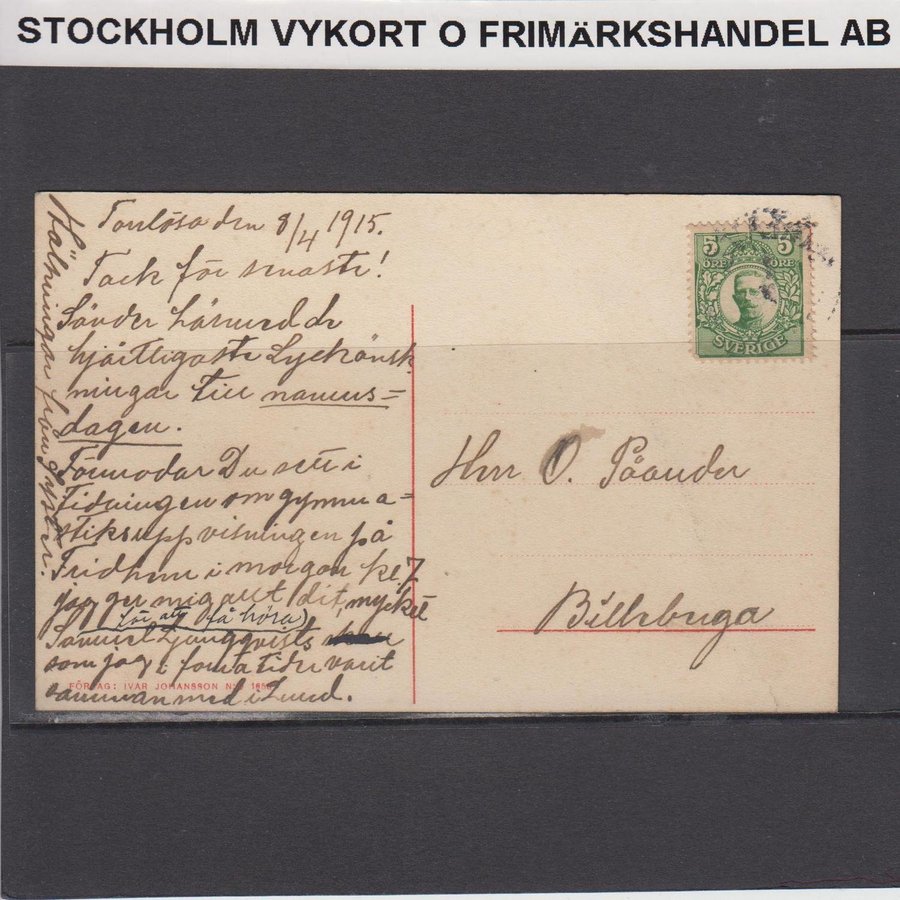 STOCKHOLM VYKORT O FRIMÄRKSHANDEL AB
Tonlösa den 8/4 1915.
Tack för senaste!
Sänder härmed de
hjärtligaste Lyckönsk
ningar till namns=
dagen.
Förmodar Du sett i
Tidningen om gymna=
stiksuppvisningen på
Fridhem i morgon kl 7
jag ger mig att dit, mycket
för att få höra
Samuel Ljungqvists
som jag i forna tider varit
samman med i Lund.
Hälsningar från
FÖRLAG: IVAR JOHANSSON N:
5 5
ÖRE ÖRE
SVERIGE
Herr O. Påander
Billeberga